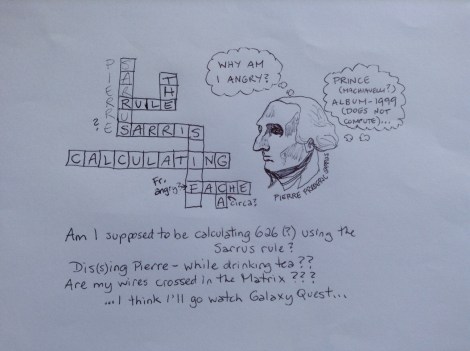 PIERRE
SARRUS
THE
RULE
?
SARRIS
CALCULATING
Fr. angry?
FACHE
CA
circa?
WHY AM
I ANGRY?
PRINCE
(MACHIAVELLI?)
ALBUM-1999
(DOES NOT
COMPUTE)...
PIERRE FREDERIC SARRUS
Am I supposed to be calculating 626 (?) using the
Sarrus rule?
Dis(s)ing Pierre - while drinking tea??
Are my wires crossed in the Matrix???
...I think I'll go watch Galaxy Quest...